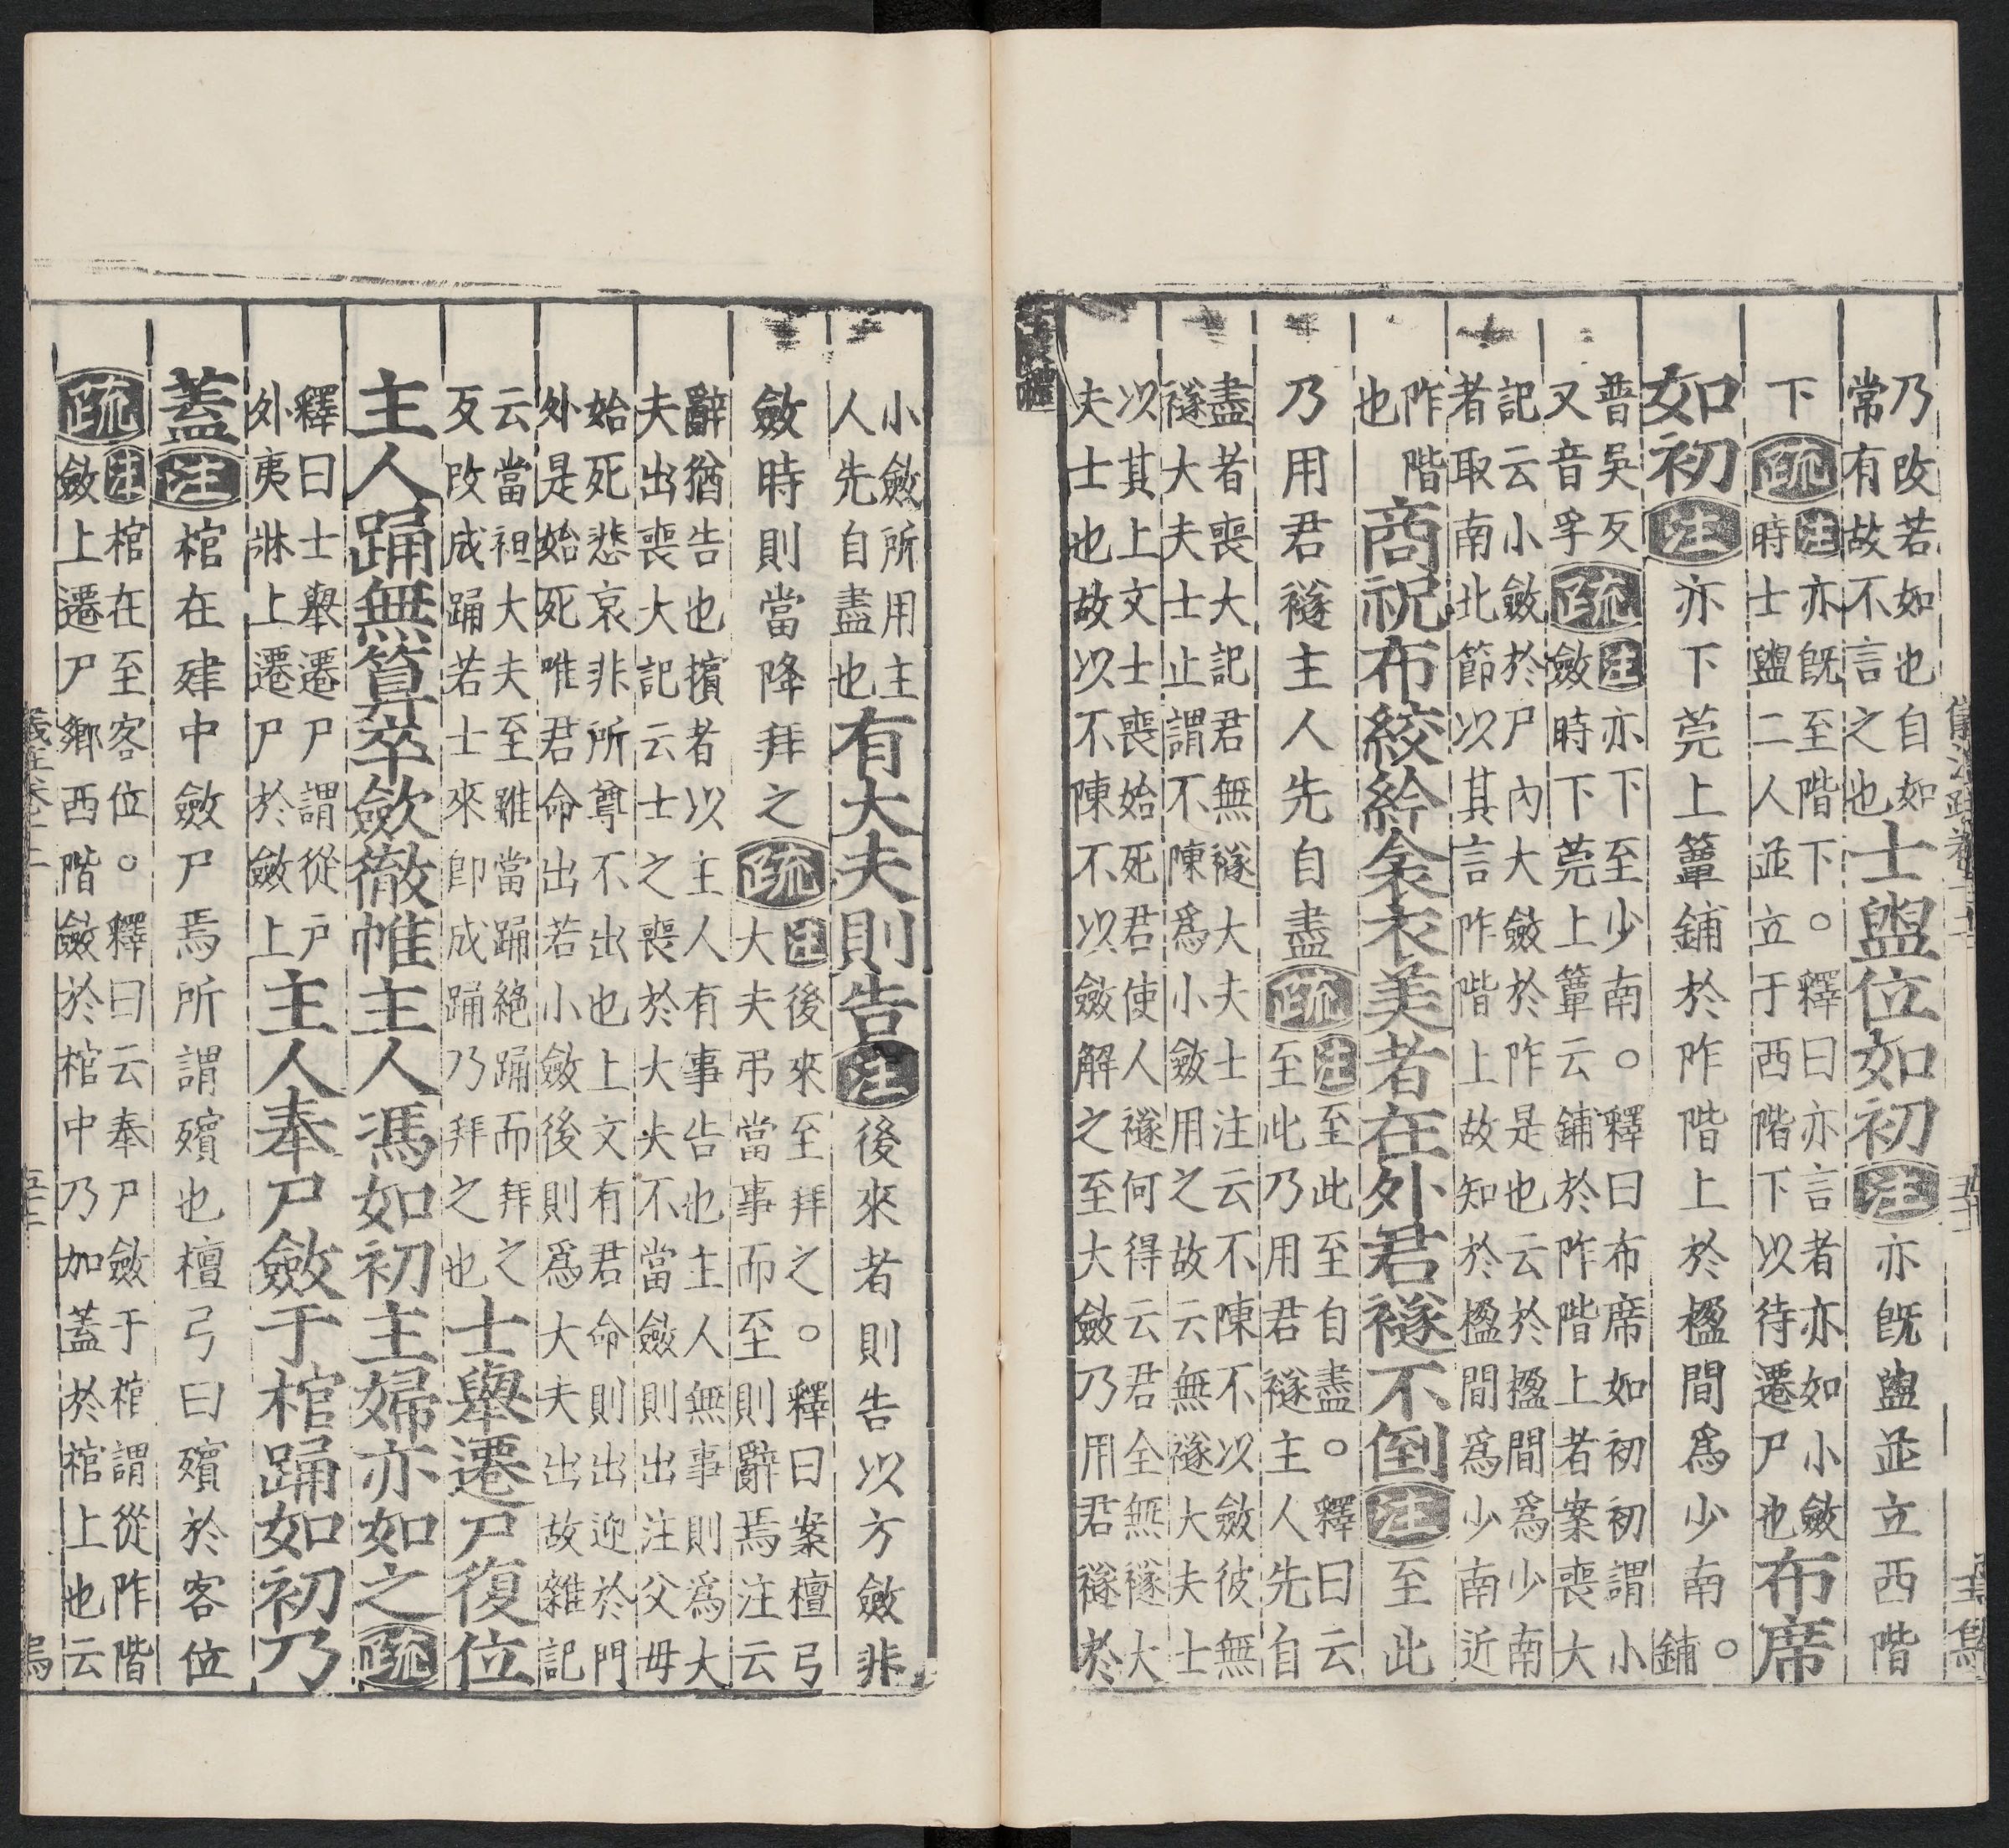 乃改若如也自如
常有故不言之也士盥位如初注亦旣盥並立西階
下疏注亦旣至階下○釋曰亦言者亦如小斂布席
時士盥二人並立于西階下以待遷尸也
如初注亦下莞上簟鋪於阼階上於楹間爲少南○鋪
普吳反疏注亦下至少南○釋曰布席如初初謂小
又音孚斂時下莞上簟云鋪於阼階上者案喪大
記云小斂於尸內大斂於阼是也云於楹間爲少南
者取南北節以其言阼階上故知於楹間爲少南近
阼階
也商祝布絞紟衾衣美者在外君襚不倒注至此
乃用君襚主人先自盡疏注至此至自盡○釋曰云
至此乃用君襚主人先自
盡者喪大記君無襚大夫士注云不陳不以斂彼無
襚大夫士止謂不陳爲小斂用之故云無襚大夫士
以其上文士喪始死君使人襚何得云君全無襚大
夫士也故以不陳不以斂解之至大斂乃用君襚於
小斂所用主
人先自盡也有大夫則告注後來者則告以方斂非
斂時則當降拜之疏注後來至拜之○釋曰案檀弓
大夫弔當事而至則辭焉注云
辭猶告也擯者以主人有事告也主人無事則爲大
夫出喪大記云士之喪於大夫不當斂則出注父母
始死悲哀非所尊不出也上文有君命則出迎於門
外是始死唯君命出若小斂後則爲大夫出故雜記
云當袒大夫至雖當踊絕踊而拜之
反改成踊若士來卽成踊乃拜之也士舉遷尸復位
主人踊無筭卒斂徹帷主人馮如初主婦亦如之疏
釋曰士舉遷尸謂從戶
外夷牀上遷尸於斂上主人奉尸斂于棺踊如初乃
蓋注棺在肂中斂尸焉所謂殯也檀弓曰殯於客位
疏注棺在至客位○釋曰云奉尸斂于棺謂從阼階
斂上遷尸鄉西階斂於棺中乃加蓋於棺上也云